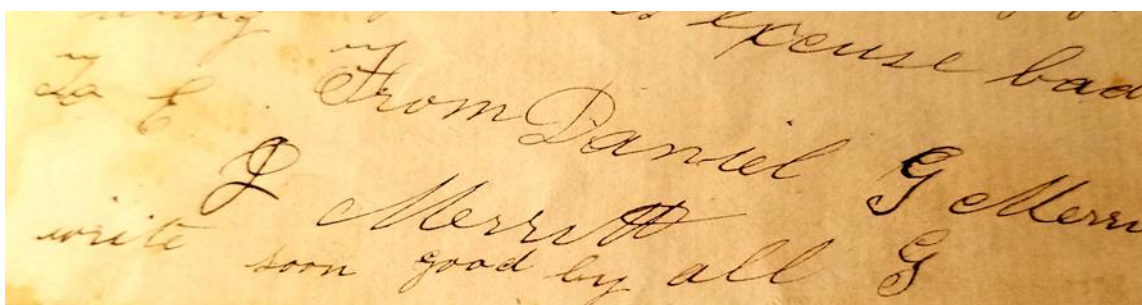 excuse bad
To E. From Daniel G Merri
J Merritt
write soon good by all G